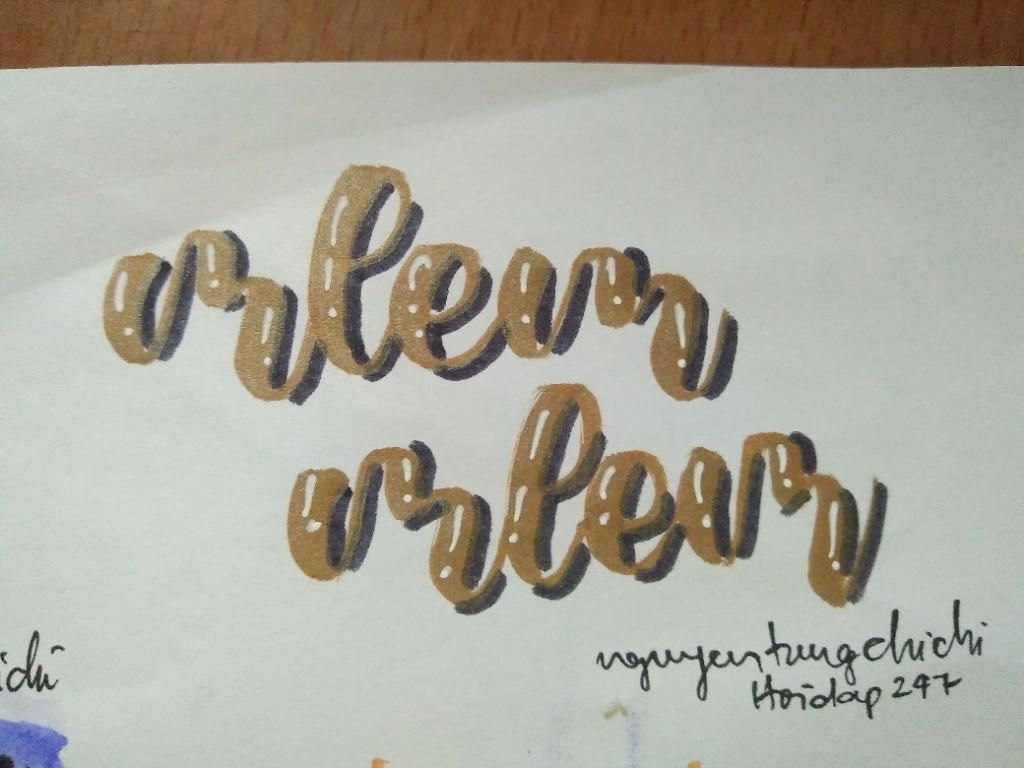 vrlem
vrlem
ichi
nguyentungchichi
Hoidap 247